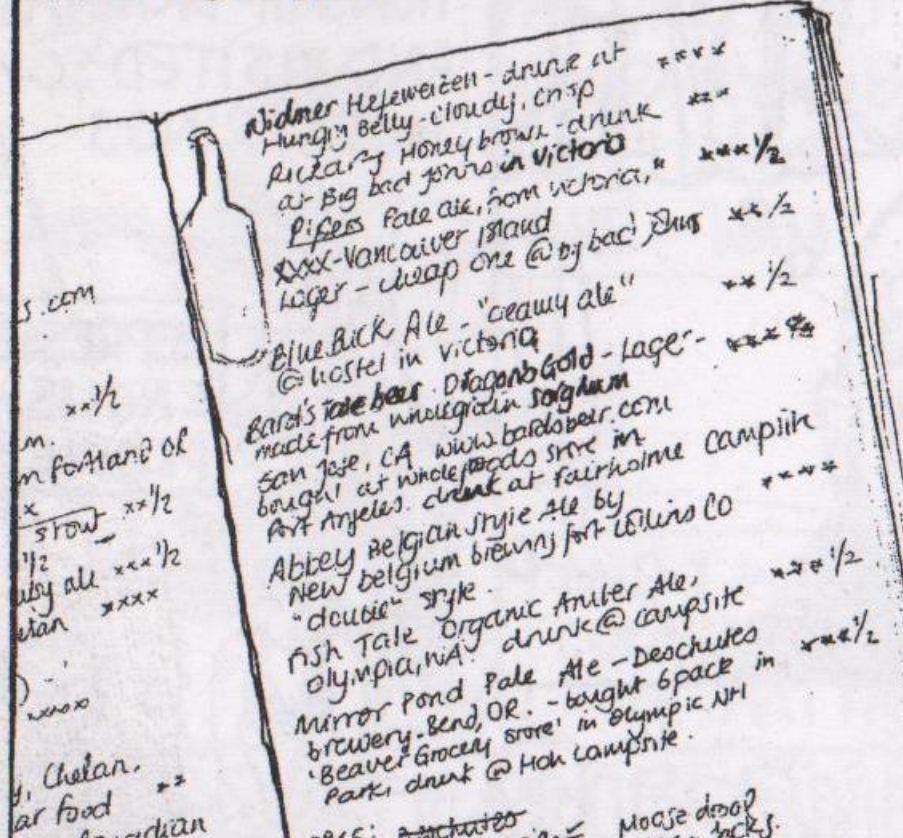 s.com
xx 1/2
m.
m Portland OR
x
stout xx 1/2
1/2
uby ale xxx 1/2
elan xxxx
)
xxxxx
y, Chelan.
ar food xx
Widmer Hefeweizen - drunk at xxxx
Hungry Belly - cloudy, crisp
Honey brown - drunk xxx
at Big bad Johns in Victoria
Pale ale, from Victoria, " xxx 1/2
XXXX - Vancouver Island
Lager - cheap one @ big bad Johns xx 1/2
Blue Buck Ale - "creamy ale" xx 1/2
@ hostel in Victoria
Bard's Tale beer. Dragons Gold - Lager -
made from wholegrain sorghum
San Jose, CA www.bardsbeer.com
bought at wholefoods store in
Port Angeles. drunk at Fairholme Campsite
Abbey Belgian Style Ale by xxxx
New belgium brewing fort Collins CO
"double" style.
Fish Tale Organic Amber Ale, xxx 1/2
Olympia, WA. drunk @ campsite
Mirror Pond Pale Ale - Deschutes xxx 1/2
brewery. Bend, OR. - bought 6pack in
'Beaver Grocery store' in Olympic Ntl
Park, drunk @ Hoh Campsite.
Deschutes
Moose drool